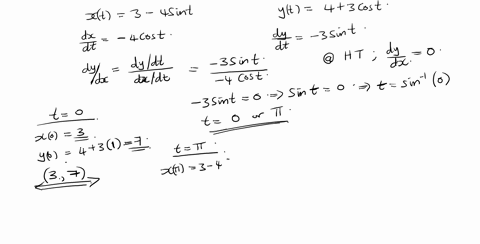 x(t) = 3 - 4Sint
y(t) = 4 + 3Cost.
dx/dt = -4Cost.
dy/dt = -3Sint.
dy/dx = (dy/dt)/(dx/dt) = (-3Sint)/(-4Cost)
@ HT ; dy/dx = 0.
-3Sint = 0 ⇒ Sint = 0 ⇒ t = Sin⁻¹(0)
t = 0 or π
t = 0
x(0) = 3
y(0) = 4 + 3(1) = 7.
(3, 7)
t = π
x(π) = 3 - 4